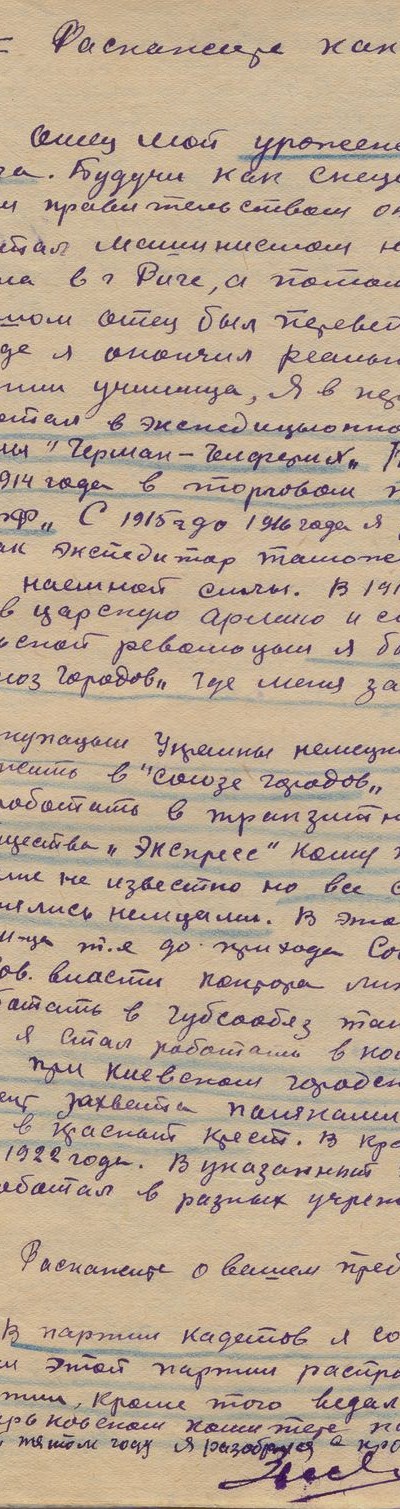 = Раскажите как
Отец мой уроженец
га. Будучи как спец
м правительством он
отал машинистом н
ла в г Риге, а потом
мом отец был перевед
де я окончил реальн
нии училища, Я в пер
отал в экспедиционно
"Герман –
1914 года в торговом
С 1915 г до 1916 года я
ак экспедитор таможе
наемной силы. В 191
в царскую армию и со
ьской революции я бы
юз городов" где меня за
купации Украины немецк
жить в "Союзе городов"
работать в транзитн
щества „Экспресс" кому
мне не известно но все с
нялись немцами. В это
т.е до прихода Сов
ов. власти контора ли
ботать в Губсообез та
я стал работать в ко
при Киевском городск
ент захвата поляками
в красный крест. В кра
1922 года. В указанный
аботал в разных учреж
Раскажите о вашем преб
В партии кадетов я со
и этой партии распро
тии, кроме того ведал
рьковском комитете па
том году я разобрался а про